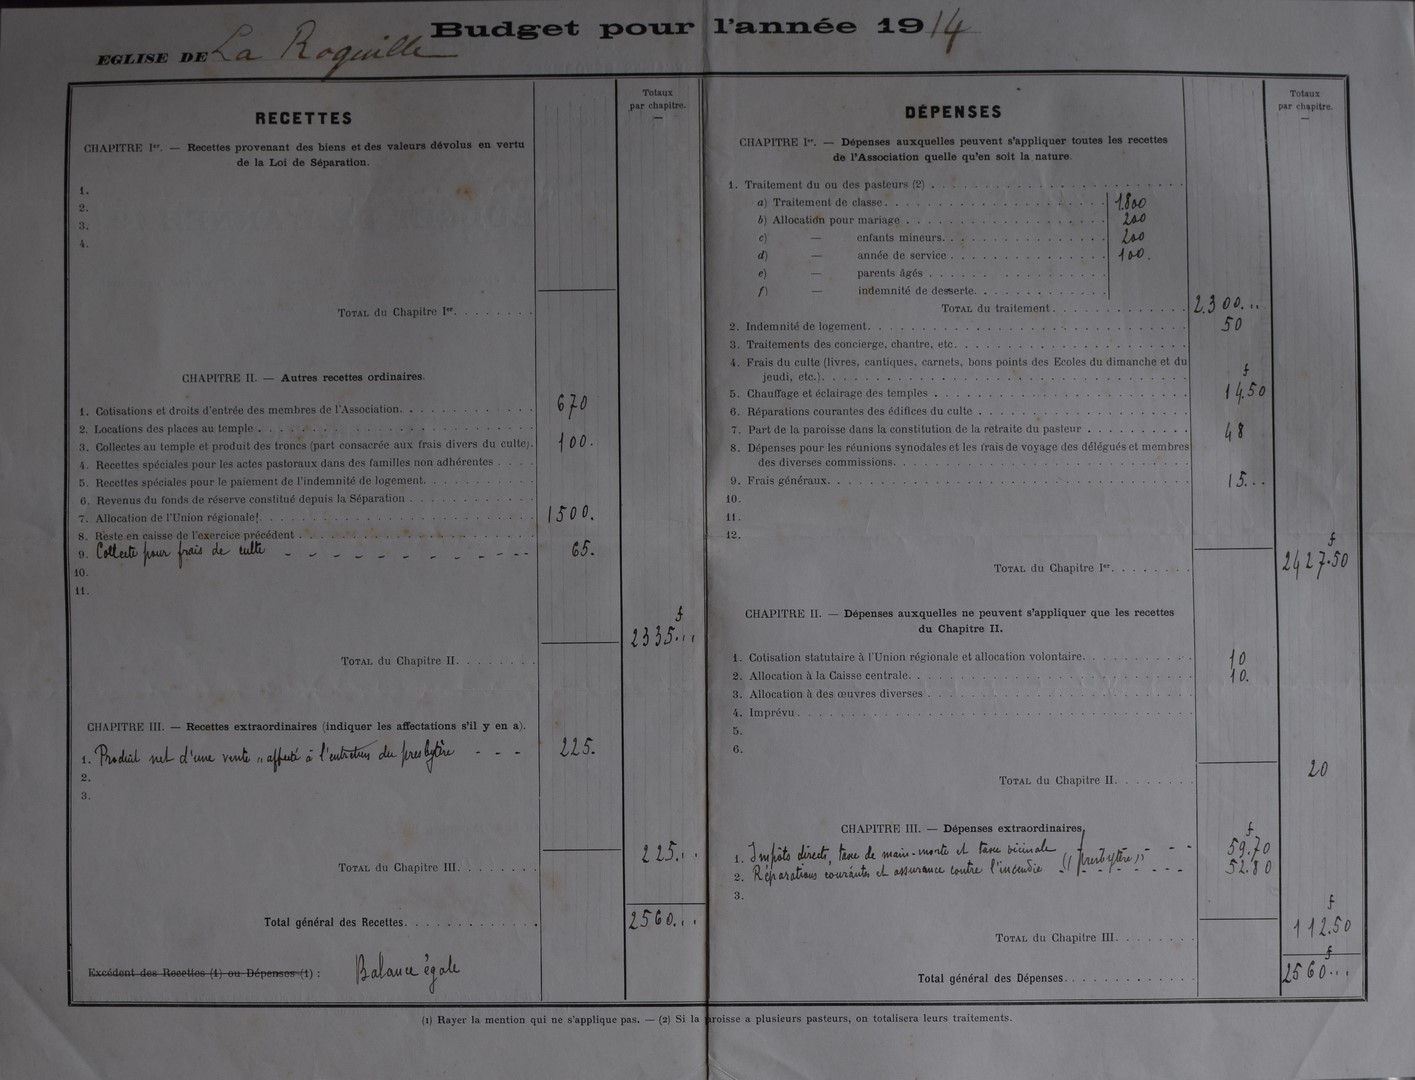 Budget pour l'année 1914
EGLISE DE La Roquille
RECETTES
Totaux par chapitre.
CHAPITRE Ier. — Recettes provenant des biens et des valeurs dévolus en vertu
de la Loi de Séparation.
1.
2.
3.
4.
TOTAL du Chapitre Ier.
CHAPITRE II. — Autres recettes ordinaires.
1. Cotisations et droits d'entrée des membres de l'Association. 670
2. Locations des places au temple
3. Collectes au temple et produit des troncs (part consacrée aux frais divers du culte). 100.
4. Recettes spéciales pour les actes pastoraux dans des familles non adhérentes
5. Recettes spéciales pour le paiement de l'indemnité de logement.
6. Revenus du fonds de réserve constitué depuis la Séparation
7. Allocation de l'Union régionale. 1500.
8. Reste en caisse de l'exercice précédent
9. Collecte pour frais de culte 65.
10.
11.
f
2335...
TOTAL du Chapitre II.
CHAPITRE III. — Recettes extraordinaires (indiquer les affectations s'il y en a).
1. Produit net d'une vente "affecté à l'entretien du presbytère 225.
2.
3.
TOTAL du Chapitre III. 225...
Total général des Recettes. 2560...
Excédent des Recettes (1) ou Dépenses (1) : Balance égale
DÉPENSES
Totaux par chapitre.
CHAPITRE Ier. — Dépenses auxquelles peuvent s'appliquer toutes les recettes
de l'Association quelle qu'en soit la nature.
1. Traitement du ou des pasteurs (2)
a) Traitement de classe. 1.800
b) Allocation pour mariage 200
c) — enfants mineurs. 200
d) — année de service 100.
e) — parents âgés
f) — indemnité de desserte.
TOTAL du traitement. 2.300...
2. Indemnité de logement. 50
3. Traitements des concierge, chantre, etc.
4. Frais du culte (livres, cantiques, carnets, bons points des Ecoles du dimanche et du
jeudi, etc.). f
5. Chauffage et éclairage des temples 14.50
6. Réparations courantes des édifices du culte
7. Part de la paroisse dans la constitution de la retraite du pasteur 48
8. Dépenses pour les réunions synodales et les frais de voyage des délégués et membres
des diverses commissions.
9. Frais généraux. 15...
10.
11.
12.
f
TOTAL du Chapitre Ier. 2427.50
CHAPITRE II. — Dépenses auxquelles ne peuvent s'appliquer que les recettes
du Chapitre II.
1. Cotisation statutaire à l'Union régionale et allocation volontaire. 10
2. Allocation à la Caisse centrale. 10.
3. Allocation à des œuvres diverses
4. Imprévu
5.
6.
TOTAL du Chapitre II. 20
CHAPITRE III. — Dépenses extraordinaires. f
1. Impôts directs, taxe de main-morte et taxe vicinale 59.70
2. Réparations courantes et assurance contre l'incendie "(presbytère)" 52.80
3.
f
TOTAL du Chapitre III. 112.50
f
Total général des Dépenses. 2560...
(1) Rayer la mention qui ne s'applique pas. — (2) Si la paroisse a plusieurs pasteurs, on totalisera leurs traitements.